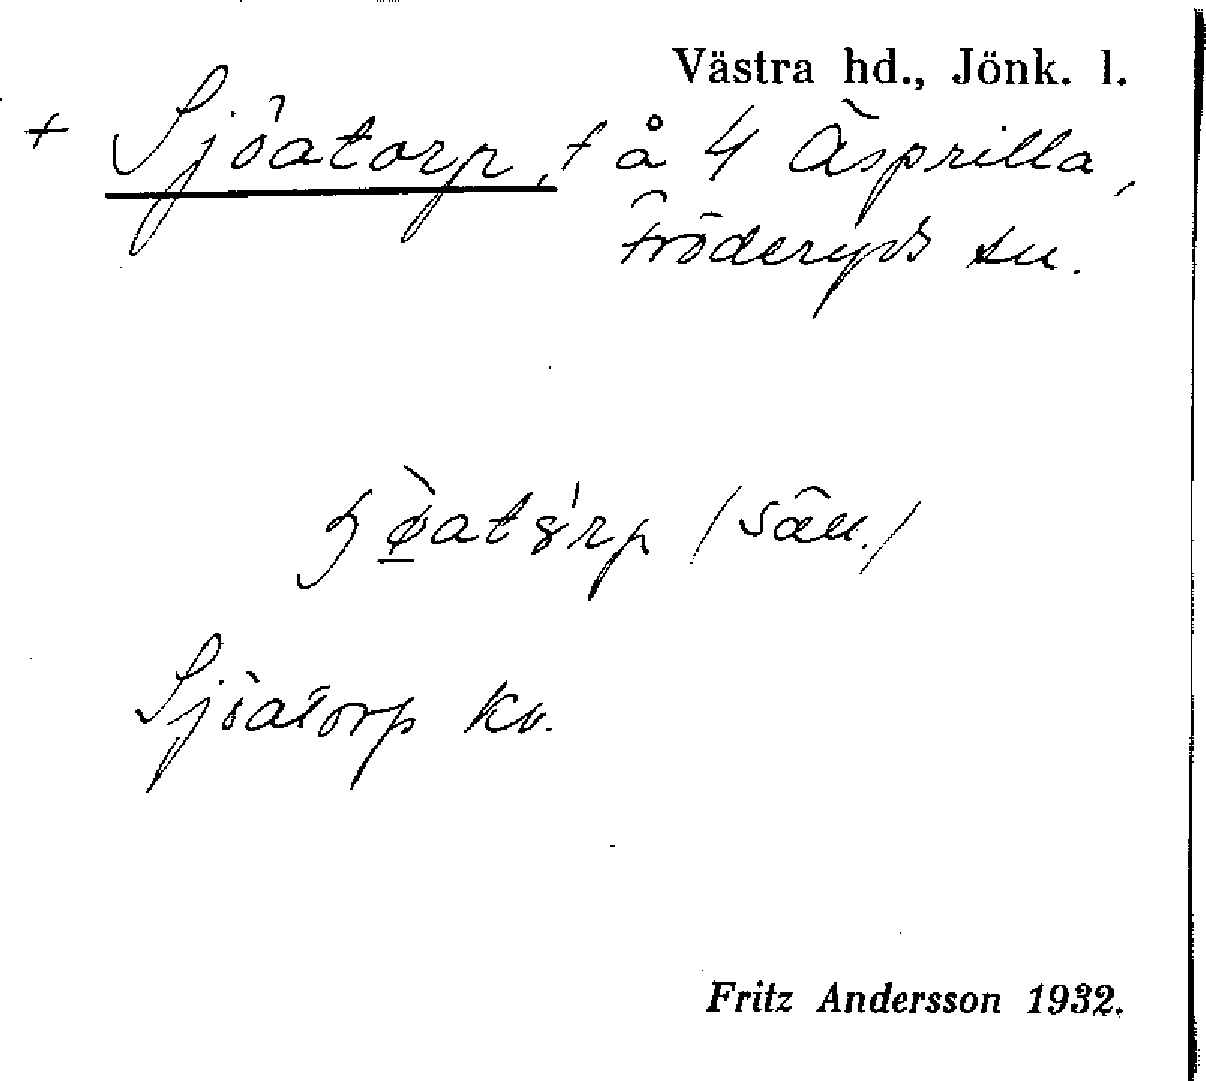 Västra hd., Jönk. l.
+ Sjöatorp, t å 4 Äsprilla,
Fröderyds sn.
ɧø̀atȣ̍rp (sån.)
Sjöatorp kv.
Fritz Andersson 1932.